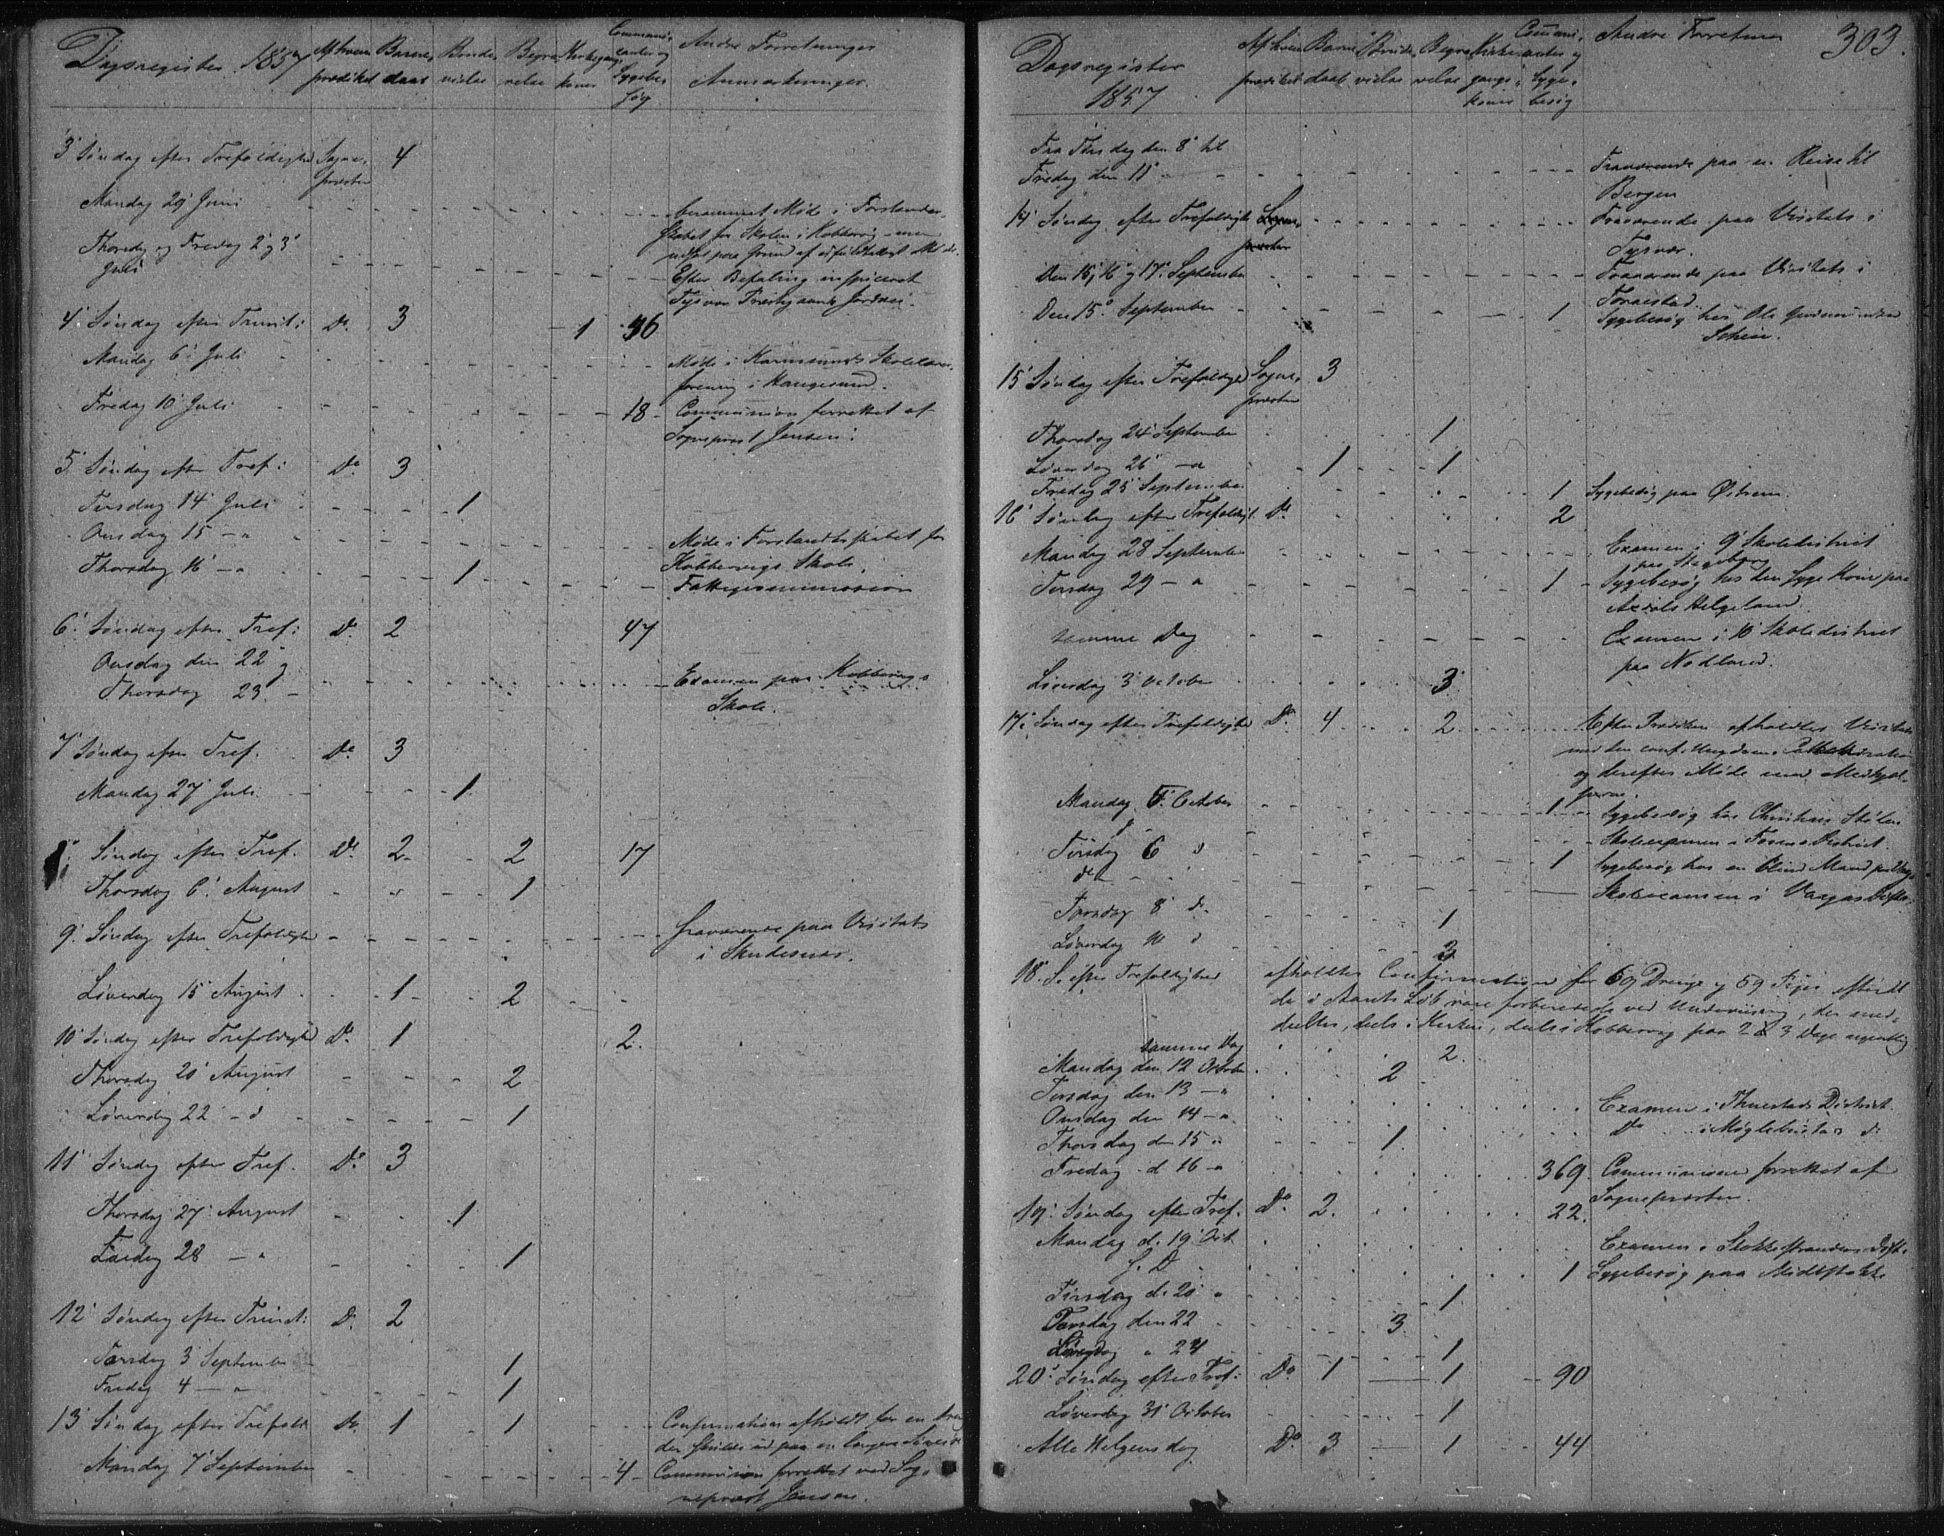 Dagsregister 1857 Af hvem prædiket Barne daab Brude vielse Begra velse Kirkegangs koner Communi canter og Sygebe søg Andre Forretninger Anmærkninger.
3' Søndag efter Trefoldighed Sogne præsten 4
Mandag 29' Juni Møde i Forstander
skabet for Skolen i Kobbervig
Thorsdag og Fredag 2' og 3' Juli
Efter Befaling inspiceret
Tysvær
4' Søndag efter Trinit: Do 3 1 36
Mandag 6' Juli Møde i Karmsunds Skolelærer
forening i Haugesund.
Fredag 10' Juli 18 Communion forrettet af
Sognepræst Jensen.
5' Søndag efter Tref: Do 3
Tirsdag 14' Juli 1
Onsdag 15 - " Møde i Forstandsskabet for
Kobbervigs Skole.
Thorsdag 16' - " 1 Fattigcommission
6' Søndag efter Tref: Do 2 47
Onsdag den 22' og
Thorsdag 23 - Examen paa Kobbervigs
Skole.
7' Søndag efter Tref. Do 3
Mandag 27' Juli 1
8' Søndag efter Tref. Do 2 2 17
Thorsdag 6' August 1
9' Søndag efter Trefoldighed fraværende paa Visitats
i Skudesnæs.
Løverdag 15' August 1 2
10' Søndag efter Trefoldighed Do 1 2.
Thorsdag 20' August 2
Løverdag 22' - d 1
11' Søndag efter Tref. Do 3
Thorsdag 27' August 1
Fredag 28 - " 1
12' Søndag efter Trinit: Do 2
Torsdag 3' September 1
Fredag 4 - " 1
13' Søndag efter Trefold. Do 1 1 Confirmation afholdt for en Dreng
der skulde ud paa en længere Søreise
Mandag 7' September 4 Communion forrettet ved Sog-
nepræst Jensen.
Dagsregister 1857 Af hvem prædiket Barne daab Brude vielse Begra velse Kirke gangs koner Communi canter og Syge besøg Andre Forretninger 303.
Fra Tirsdag den 8' til
Fredag den 11' Fraværende paa en Reise til
Bergen
14' Søndag efter Trefoldigh. Sogne præsten Fraværende paa Visitats i
Tysvær.
Den 15', 16' og 17' September Fraværende paa Visitats i
Torvestad
Den 15' September 1 Sygebesøg hos Ole Gudmundsen
15' Søndag efter Trefoldigh Sogne præsten 3
Thorsdag 24' September 1
Løverdag 26' - " 1 1
Fredag 25' September 1 Sygebesøg paa Østrem.
16' Søndag efter Trefoldigh. Do 2
Mandag 28 September Examen i 9' Skoledistrict
paa Stageberg
Tirsdag 29 - " 1 Sygebesøg hos den syge Kone paa
Helgeland
samme Dag Examen i 10' Skoledistrict
paa Nodland.
Løverdag 3' October 3
17' Søndag efter Trefoldighed Do 4 2 Efter Prædiken afholdtes Visitats
med den conf. Ungdom
og derefter Møde med Medhjæl-
perne.
Mandag 5' October 1 Sygebesøg hos Christian
Tirsdag 6 d Skoleexamen i District
do 1 Sygebesøg hos en blind Mand paa
Skoleexamen i
Torsdag 8' d. 1
Løverdag 10 d 3
18' S. efter Trefoldighed afholdtes Confirmation for 69 Drenge og 59 Piger efterat
de i Aarets Løb vare forberedede ved Underviisning, der med-
deeltes, deels i Kirken, deels i Kobbervig paa 2 à 3 Dage ugentlig
samme Dag 2.
Mandag den 12 October 2
Tirsdag den 13 - " Examen i District
Onsdag den 14 - " Do i d:
Thorsdag den 15 " 1.
Fredag d 16 - " 369. Communion forrettet af
Sognepræsten.
19' Søndag efter Tref. Do 2. 22.
Mandag d. 19' Oct. Examen i Stokkestrandens Distr.
s. D 1 Sygebesøg paa Midtstokke
Tirsdag d. 20' " 1.
Torsdag den 22 3
Løverdag " 24 1
20' Søndag efter Tref: Do 1 1 90
Løverdag 31' October 1
Alle Helgens dag Do 3 1 44